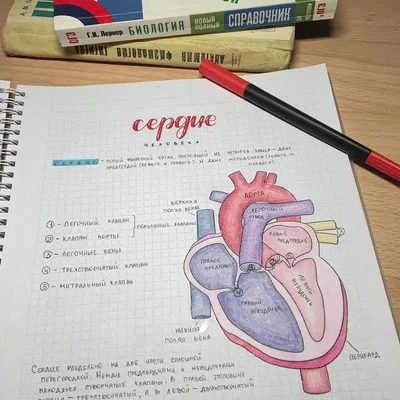 Г.И. Лернер БИОЛОГИЯ
НОВЫЙ ПОЛНЫЙ СПРАВОЧНИК
ОГЭ
АНАТОМИЯ ФИЗИОЛОГИЯ
ГИГИЕНА
сердце
ЧЕЛОВЕКА
СЕРДЦЕ - ПОЛЫЙ МЫШЕЧНЫЙ ОРГАН, СОСТОЯЩИЙ ИЗ ЧЕТЫРЁХ КАМЕР - ДВУХ
ПРЕДСЕРДИЙ (ЛЕВОГО И ПРАВОГО) И ДВУХ ЖЕЛУДОЧКОВ (ЛЕВОГО И
ПРАВОГО)
ВЕРХНЯЯ
ПОЛАЯ ВЕНА
АОРТА
ЛЕГОЧНЫЙ
СТВОЛ
ЛЕВОЕ
ПРЕДСЕРДИЕ
ПРАВОЕ
ПРЕДСЕРДИЕ
ЛЕВЫЙ
ЖЕЛУДОЧЕК
ПРАВЫЙ
ЖЕЛУДОЧЕК
1 - ЛЕГОЧНЫЙ КЛАПАН
2 - КЛАПАН АОРТЫ
ПОЛУЛУННЫЕ КЛАПАНЫ
3 - ЛЕГОЧНЫЕ ВЕНЫ
4 - ТРЕХСТВОРЧАТЫЙ КЛАПАН
5 - МИТРАЛЬНЫЙ КЛАПАН
НИЖНЯЯ
ПОЛАЯ ВЕНА
ПЕРИКАРД
СЕРДЦЕ РАЗДЕЛЕНО НА ДВЕ ЧАСТИ СПЛОШНОЙ
ПЕРЕГОРОДКОЙ. МЕЖДУ ПРЕДСЕРДИЯМИ И ЖЕЛУДОЧКАМИ
НАХОДЯТСЯ СТВОРЧАТЫЕ КЛАПАНЫ - В ПРАВОЙ ПОЛОВИНЕ
ТРЕХСТВОРЧАТЫЙ, А В ЛЕВОЙ - ДВУХСТВОРЧАТЫЙ